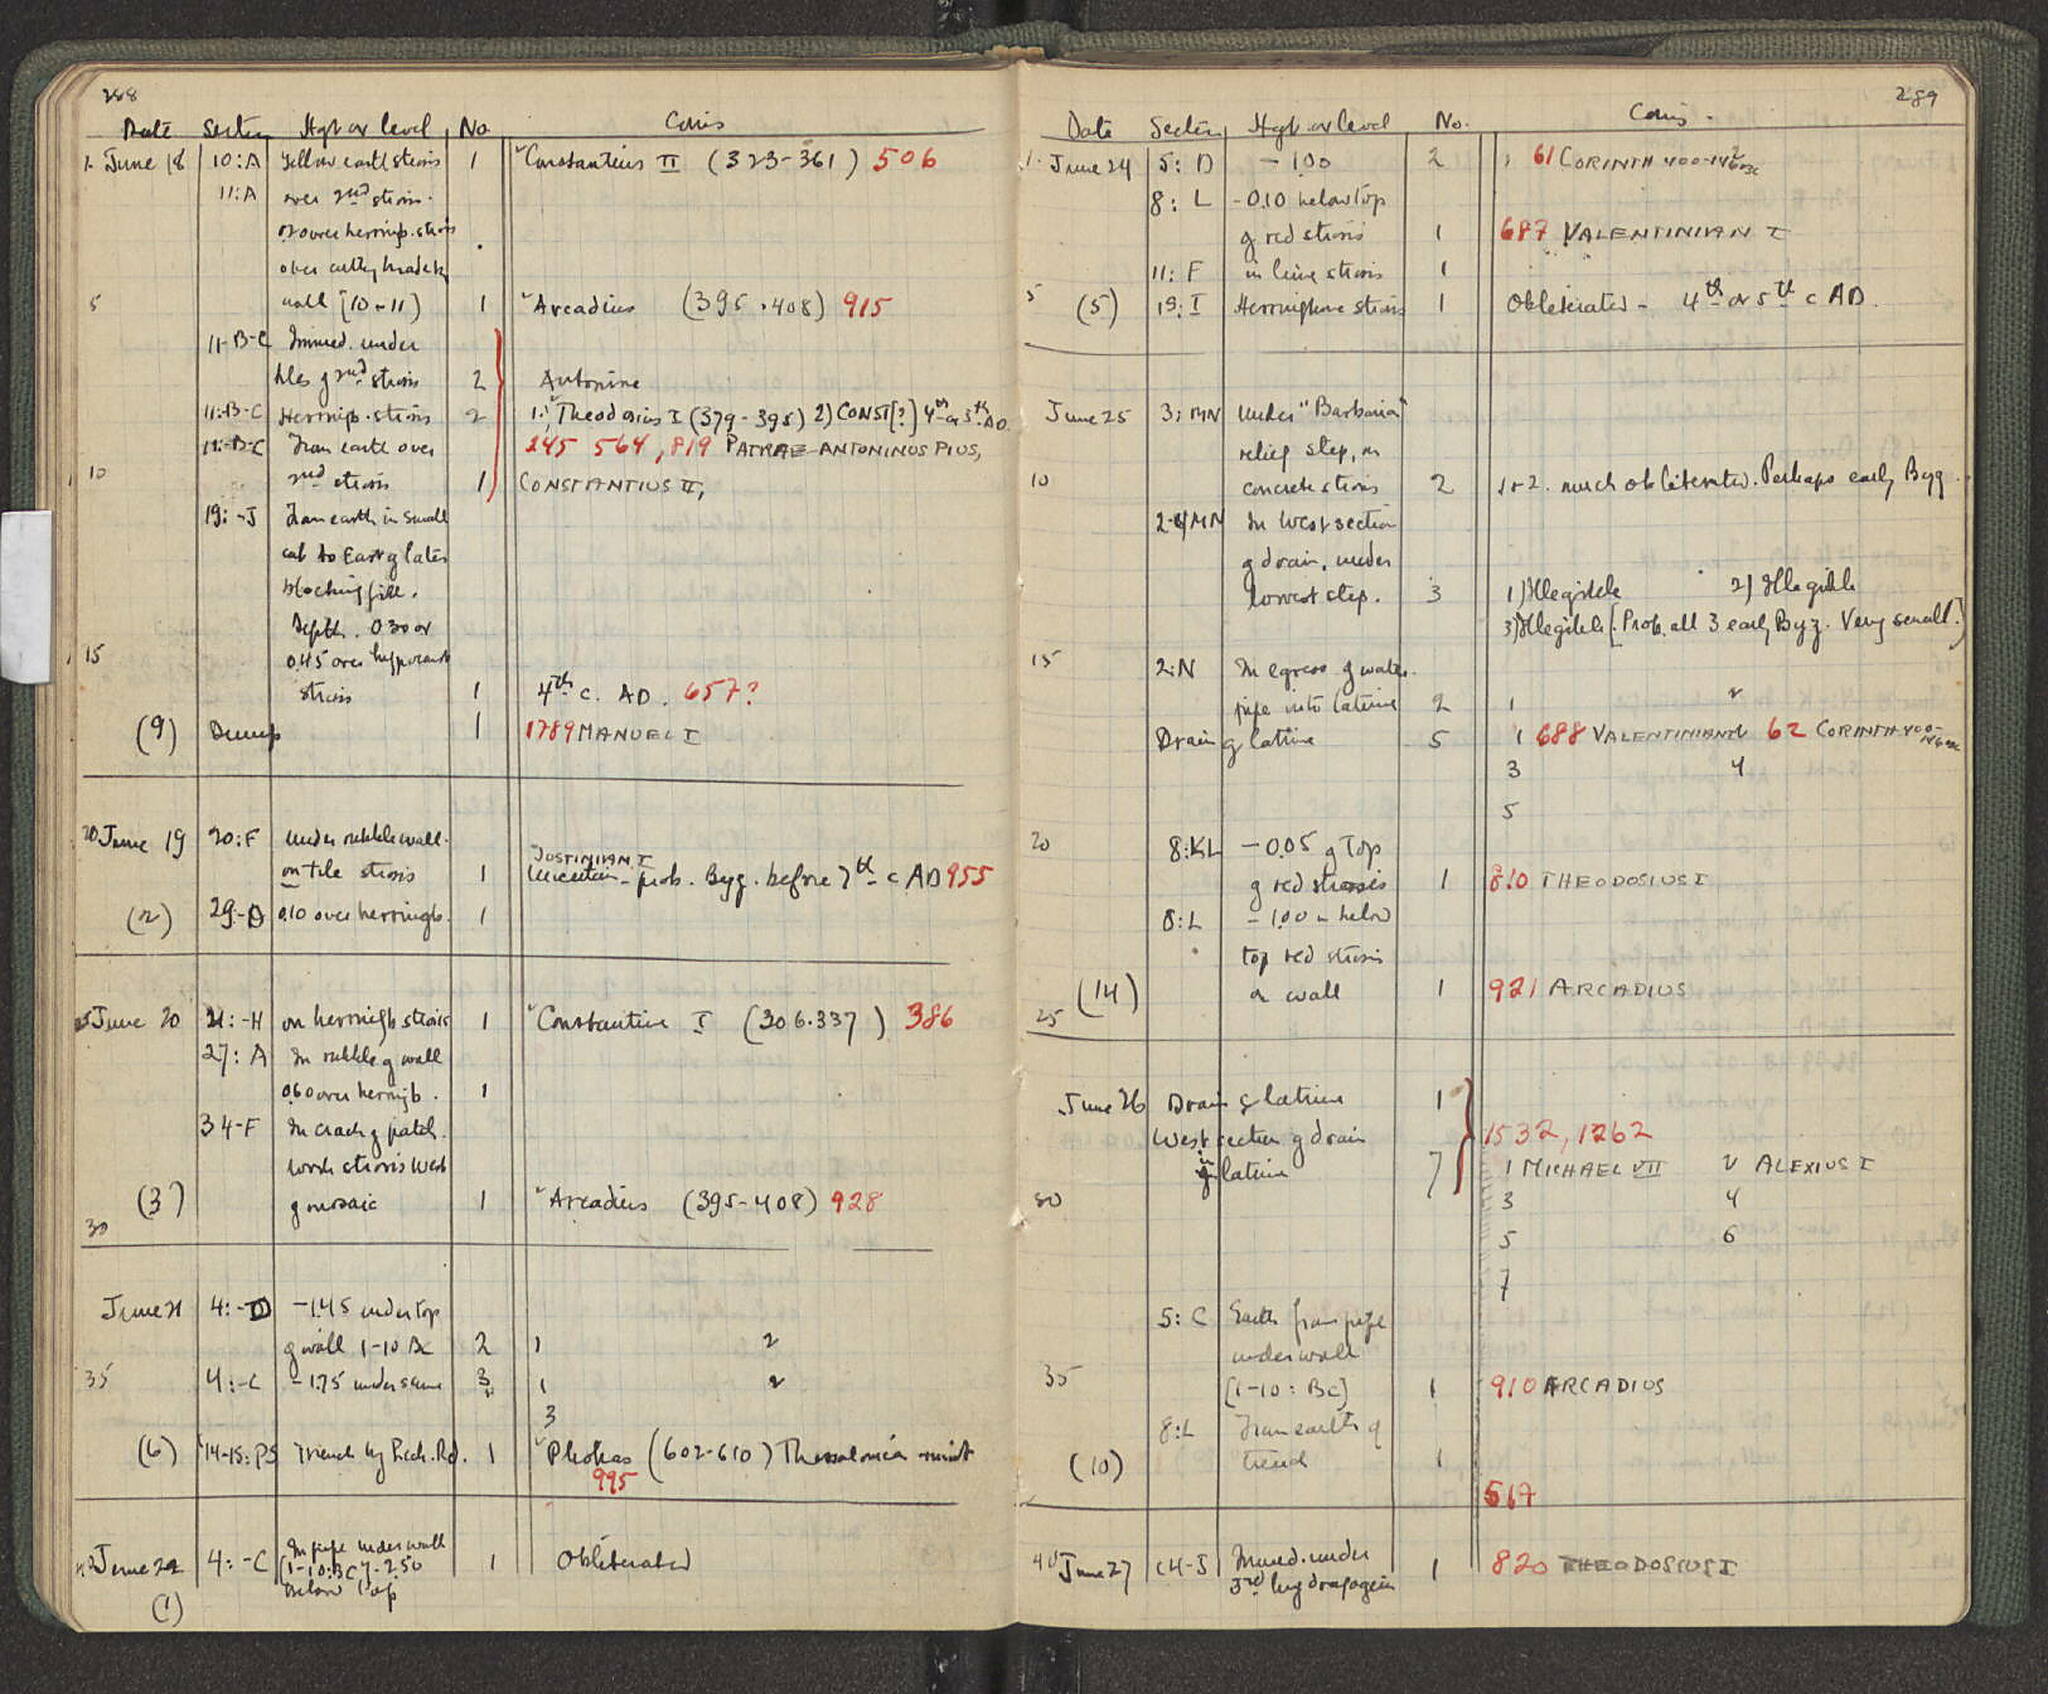 288
Date Section Hgt or level No. Coins
1. June 18 10:A Yellow earth strosis 1 Constantius II (323-361) 506
11:A over 2nd strosis.
over herringb. strosis
over
5 wall [10-11] 1 Arcadius (395-408) 915
11-B-C Immed. under
tiles of 2nd strosis 2 Antonine
11:-B-C Herringb. strosis 2 1. Theodosius I (379-395) 2) CONST[?] 4th or 5th AD
11:-B-C From earth over 245 564, 819 PATRAE-ANTONINUS PIUS,
10 2nd strosis 1 CONSTANTIUS II,
19:-J From earth in small
cut to East of later
blocking fill.
Depth. 0.30 or
15 0.45 over hypocaust
strosis 1 4th c. AD. 657?
(9) Dump 1 1789 MANUEL I
20 June 19 20:F under rubble wall.
JUSTINIAN I
on tile strosis 1 Uncertain - prob. Byz. before 7th c AD 955
(2) 29:-D 0.10 over herringb. 1
25 June 20 21:-H on herringb strosis 1 Constantine I (306-337) 386
27:A In rubble of wall
0.60 over herringb. 1
34-F In crack of patch.
work strosis West
(3) of mosaic 1 Arcadius (395-408) 928
30
June 21 4:-D -1.45 under top
of wall 1-10 BC 2 1 2
35 4:-C -1.75 under same 3 1 2
3
(6) 14-15:PS Trench by Rd. 1 Phokas (602-610) Thessalonica mint
995
June 22 4:-C In pipe under wall
[1-10:BC] -2.50 1 Obliterated
below top
(1)
289
Date Section Hgt. or level No. Coins.
1. June 24 5:D -1.00 2 1 61 CORINTH 400-146 BC 2
8:L -0.10 below top
of red strosis 1 687 VALENTINIAN I
11:F in lime strosis 1
5 (5) 19:I Herringbone strosis 1 Obliterated - 4th or 5th c AD.
June 25 3:MN under "Barbaria"
relief step, in
10 concrete strosis 2 1+2. much obliterated. Perhaps early Byz.
2-4/MN In West section
of drain, under
lowest step. 3 1) Illegible 2) Illegible
3) Illegible [Prob. all 3 early Byz. Very small.]
15 2:N In egress of water
pipe into latrine 2 1 2
Drain of latrine 5 1 688 VALENTINIAN I 2 62 CORINTH 400-146 BC
3 4
5
20 8:KL -0.05 of Top
of red strosis 1 810 THEODOSIUS I
8:L -1.00 m below
top red strosis
(14) or wall 1 921 ARCADIUS
25
June 26 Drain of latrine 1
West section of drain 1532, 1262
in latrine 7 1 MICHAEL VII 2 ALEXIUS I
30 3 4
5 6
7
5:C Earth from pipe
under wall
35 [1-10:BC] 1 910 ARCADIUS
8:L From earth of
(10) trench 1
567
40 June 27 14-J Immed. under 1 820 THEODOSIUS I
3rd hydragogeion